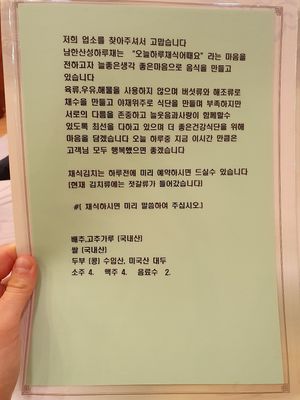 저희 업소를 찾아주셔서 고맙습니다
남한산성하루재는 "오늘하루채식어때요" 라는 마음을
전하고자 늘좋은생각 좋은마음으로 음식을 만들고
있습니다
육류,우유,해물을 사용하지 않으며 버섯류와 해조류로
채수을 만들고 야채위주로 식단을 만들며 부족하지만
서로의 다름을 존중하고 늘웃음과사랑이 함께할수
있도록 최선을 다하고 있으며 더 좋은건강식단을 위해
마음을 담겠습니다 오늘 하루중 지금 이시간 만큼은
고객님 모두 행복했으면 좋겠습니다
채식김치는 하루전에 미리 예약하시면 드실수 있습니다
(현재 김치류에는 젓갈류가 들어갔습니다)
#( 채식하시면 미리 말씀하여 주십시오.)
배추,고추가루 (국내산)
쌀 (국내산)
두부 (콩) 수입산, 미국산 대두
소주 4. 맥주 4. 음료수 2.